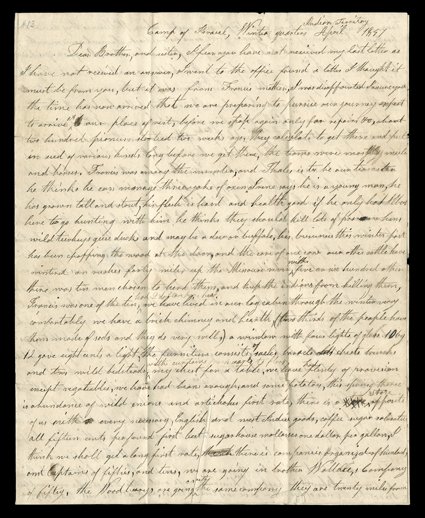 Indian Teritory
Camp of Israel, Winter quarters April 1847
Dear Brother, and sister, I fear you have not received my last letter as
I have not received an answer, I went to the office found a letter I thought it
must be from you, but it was from Francis mother, I was disappointed I assure you
the time has now arrived that we are preparing to pursue our journey expect
to arrive at our place of rest, before we stop again only for repairs &c, about
two hundred pioneers started two weeks ago, they calculate to get there and put
in seed of various kinds long before we get there, the teams were mostly mules
and horses, Francis was among the number, and Thales is to be our teamster
he thinks he can manage three yoke of oxen alone says he is a young man, he
has grown tall and stout, his flesh is hard and health good if he only had
here to go hunting with him he thinks they should kill lots of
wild turkeys geese ducks and maybe a deer or buffalo, his business this winter past
has been chopping the wood at the door, and the care of one cow our other cattle have
wintered on rushes forty miles up the Missouri river, with five or six hundred others
there was ten men chosen to tend them, and keep the indians from killing them,
Francis was one of the ten, we have lived in our log cabin through the winter very
comfortably we have a brick chimney and hearth, two thirds of the people have
them made of sods and they do very well, a window with four lights of glass 10 by
12 gave eight cents a light, the furniture consists of sacks, barrels chests trunks
and two wild bedsteads my chest for a table, we have plenty of provision
except vegetables, we have had beans enough, and some potatoes, this spring there
is abundance of wild onions and artichokes first rate, there is a store opposite
of us with every necessary, English and most Indies goods, coffee sugar salaratus
all fifteen cents pr pound first best sugar house molasses one dollar per gallon, I
think we shall get along first rate, there is companies organized of hundreds,
and Captains of fifties, and tens, we are going in brother Wallace's Company
of fifty, the Woodburys are going with the same company they are twenty miles from